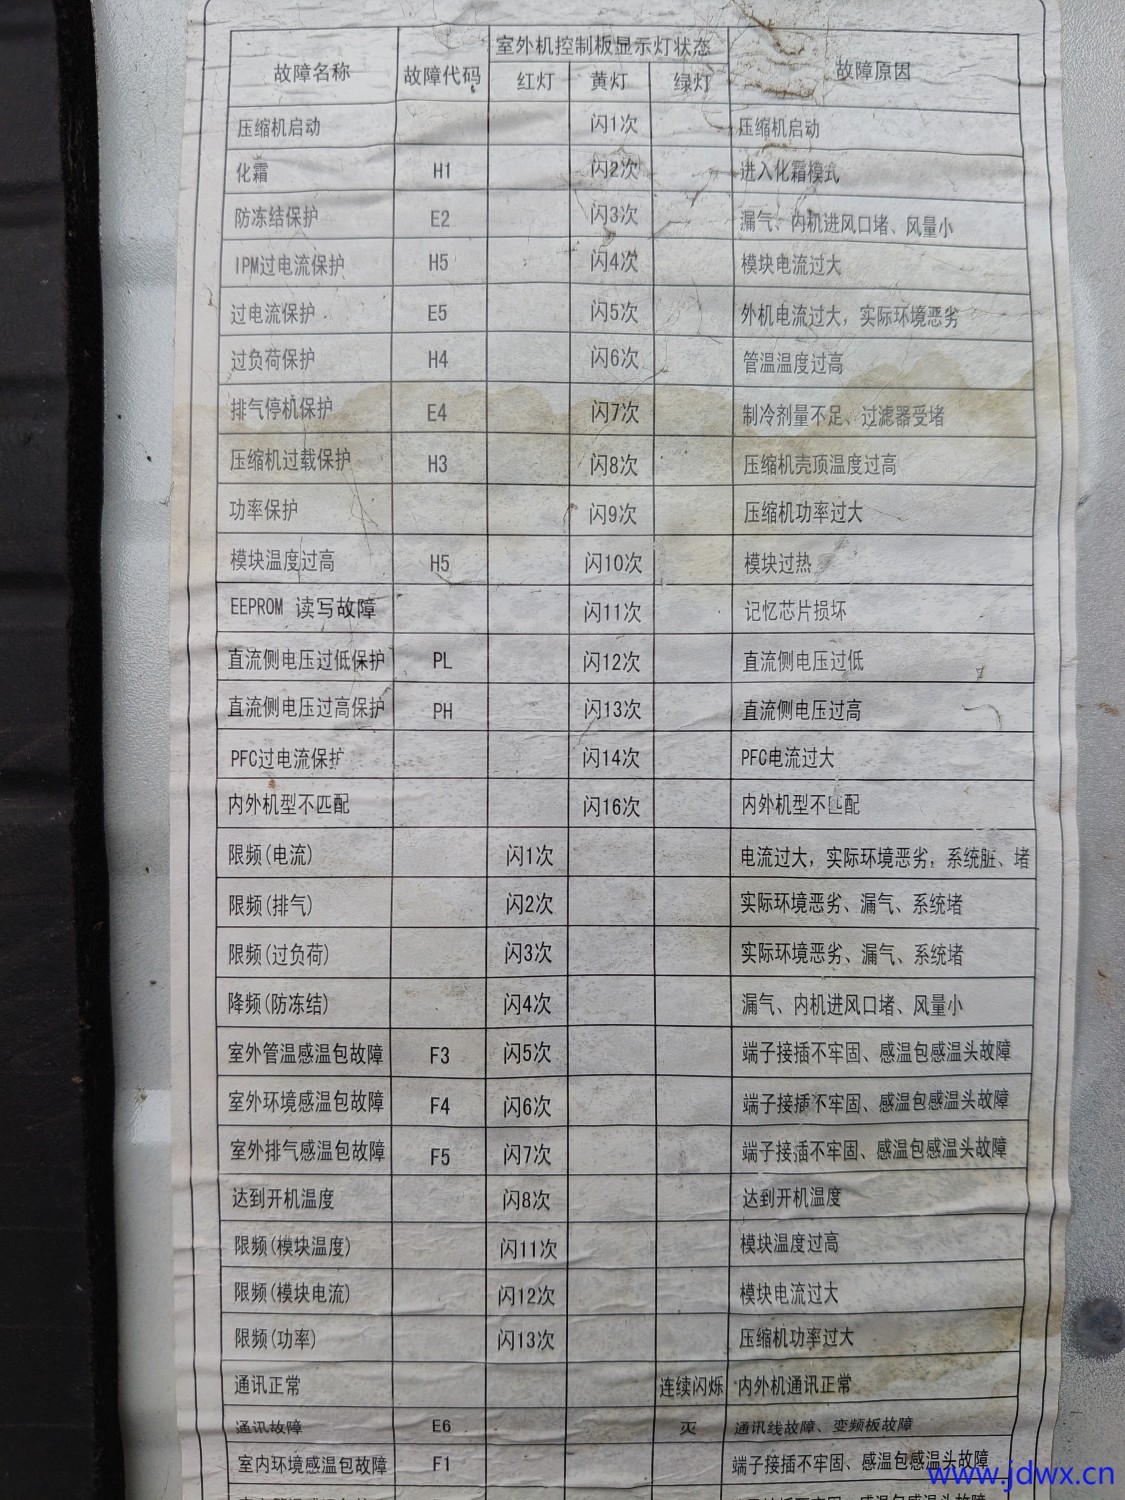 故障名称 故障代码 室外机控制板显示灯状态 故障原因
红灯 黄灯 绿灯
压缩机启动 闪1次 压缩机启动
化霜 H1 闪2次 进入化霜模式
防冻结保护 E2 闪3次 漏气、内机进风口堵、风量小
IPM过电流保护 H5 闪4次 模块电流过大
过电流保护 E5 闪5次 外机电流过大，实际环境恶劣
过负荷保护 H4 闪6次 管温温度过高
排气停机保护 E4 闪7次 制冷剂量不足、过滤器受堵
压缩机过载保护 H3 闪8次 压缩机壳顶温度过高
功率保护 闪9次 压缩机功率过大
模块温度过高 H5 闪10次 模块过热
EEPROM 读写故障 闪11次 记忆芯片损坏
直流侧电压过低保护 PL 闪12次 直流侧电压过低
直流侧电压过高保护 PH 闪13次 直流侧电压过高
PFC过电流保护 闪14次 PFC电流过大
内外机型不匹配 闪16次 内外机型不匹配
限频(电流) 闪1次 电流过大，实际环境恶劣，系统脏、堵
限频(排气) 闪2次 实际环境恶劣、漏气、系统堵
限频(过负荷) 闪3次 实际环境恶劣、漏气、系统堵
降频(防冻结) 闪4次 漏气、内机进风口堵、风量小
室外管温感温包故障 F3 闪5次 端子接插不牢固、感温包感温头故障
室外环境感温包故障 F4 闪6次 端子接插不牢固、感温包感温头故障
室外排气感温包故障 F5 闪7次 端子接插不牢固、感温包感温头故障
达到开机温度 闪8次 达到开机温度
限频(模块温度) 闪11次 模块温度过高
限频(模块电流) 闪12次 模块电流过大
限频(功率) 闪13次 压缩机功率过大
通讯正常 连续闪烁 内外机通讯正常
通讯故障 E6 灭 通讯线故障、变频板故障
室内环境感温包故障 F1 端子接插不牢固、感温包感温头故障
www.jdwx.cn